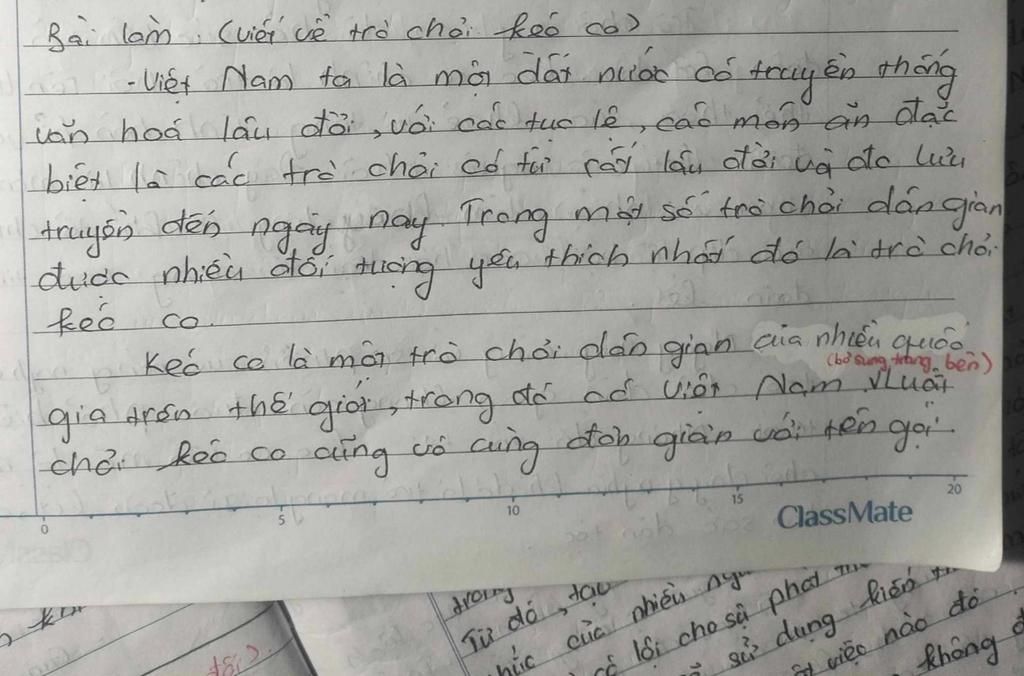 Bài làm: (viết về trò chơi kéo co)
- Việt Nam ta là một đất nước có truyền thống
văn hoá lâu đời, với các tục lệ, các món ăn đặc
biệt là các trò chơi có từ rất lâu đời và đc lưu
truyền đến ngày nay. Trong một số trò chơi dân gian
được nhiều đối tượng yêu thích nhất đó là trò chơi
kéo co.
Kéo co là một trò chơi dân gian của nhiều quốc
(bổ sung trang bên)
gia trên thế giới, trong đó có Việt Nam. Luật
chơi kéo co cũng vô cùng đơn giản với tên gọi.
0 5 10 15 20
ClassMate
trong
Từ đó, tạo
của nhiều
lội cho sự phát
sử dụng kiến
việc nào đó
không